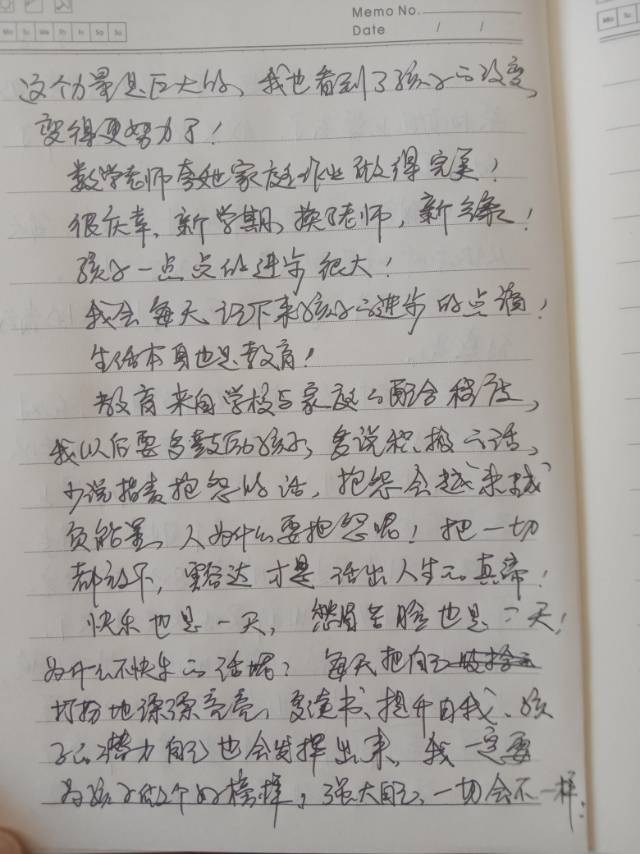 Memo No.
Date / /
Mo Tu We Th Fr Sa Su
这个力量是巨大的、我也看到了孩子的改变,
变得更努力了!
数学老师夸她家庭作业做得完美!
很庆幸、新学期、换了老师,新气象!
孩子一点点的进步很大!
我会每天记下来孩子的进步的点滴!
生活本身也是教育!
教育来自学校与家庭的配合程度,
我以后要多鼓励孩子,多说积极的话,
少说指责抱怨的话,抱怨会越来越
负能量、人为什么要抱怨呢!把一切
都放下,豁达才是活出人生的真谛!
快乐也是一天,愁眉苦脸也是一天!
为什么不快乐的活呢?每天把自己
打扮地漂漂亮亮、多读书、提升自我、孩
子的潜力自己也会发挥出来、我一定要
为孩子做个好榜样,强大自己、一切会不一样!